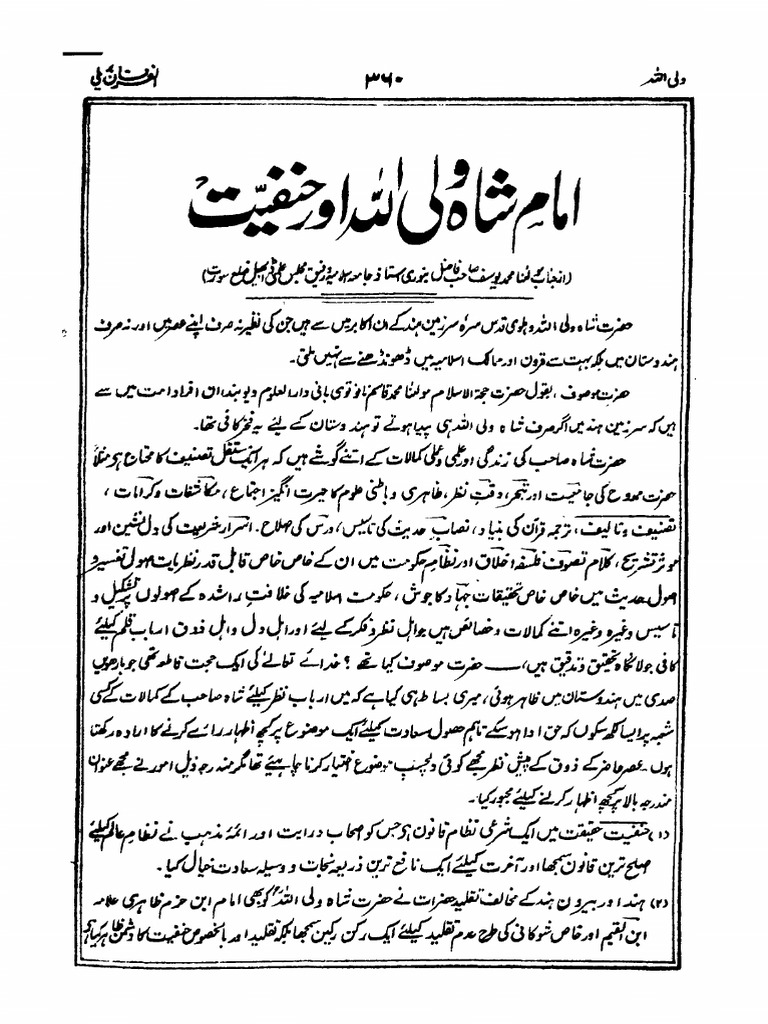 ولی اللہ ۳۶۰ الفرقان بریلی
امام شاہ ولی اللہ اور حنفیت
(از جناب مولٰنا محمد یوسف صاحب فاضل بنوری استاذ جامعہ اسلامیہ و رفیق مجلس علمی ڈابھیل ضلع سورت)
حضرت شاہ ولی اللہ دہلوی قدس سرہٗ سرزمین ہند کے ان اکابر میں سے ہیں جن کی نظیر نہ صرف اپنے عصر میں اور نہ صرف
ہندوستان میں بلکہ بہت سے قرون اور ممالک اسلامیہ میں ڈھونڈھنے سے نہیں ملتی۔
حضرت موصوف، بقول حضرت حجۃ الاسلام مولٰنا محمد قاسم نانوتوی بانی دارالعلوم دیوبند ان افراد امت میں سے
ہیں کہ سرزمین ہند میں اگر صرف شاہ ولی اللہ ہی پیدا ہوتے تو ہندوستان کے لیئے یہ فخر کافی تھا۔
حضرت شاہ صاحب کی زندگی اور علمی و عملی کمالات کے اتنے گوشے ہیں کہ ہر ایک مستقل تصنیف کا محتاج ہی مثلاً
حضرت ممدوح کی جامعیت اور تبحر، دقتِ نظر، ظاہری و باطنی علوم کا حیرت انگیز اجتماع، مکاشفات و کرامات،
تصنیف و تالیف، ترجمہ قرآن کی بنیاد، نصاب حدیث کی تاسیس، درس کی صلاح۔ اسرار شریعت کی دل نشین اور
موثر تشریح، کلام تصوف فلسفۂ اخلاق اور نظام حکومت میں ان کے خاص خاص قابل قدر نظریات صولی تفسیر و
اصول حدیث میں خاص خاص تحقیقات جہاد کا جوش، حکومت اسلامیہ کی خلافتِ راشدہ کے صولوں پر تشکیل و
تاسیس وغیرہ وغیرہ اتنے کمالات و خصائص ہیں جو اہل نظر و فکر کے لیئے اور اہل دل و اہل ذوق ارباب قلم کیلئے
کافی جولانگاہ تحقیق و تدقیق ہیں، — حضرت موصوف کیا تھے؟ خدائے تعالیٰ کی ایک حجت قاطعہ تھی جو بارھویں
صدی میں ہندوستان میں ظاہر ہوئی، میری بساط ہی کیا ہے کہ میں ارباب نظر کیلئے شاہ صاحب کے کمالات کے کسی
شعبہ پر ایسا لکھ سکوں کہ حق ادا ہو سکے تاہم حصول سعادت کیلئے ایک موضوع پر کچھ اظہار رائے کرنے کا ارادہ رکھتا
ہوں۔ عصر حاضر کے ذوق کے پیش نظر مجھے کوئی دلچسپ موضوع اختیار کرنا چاہیئے تھا مگر مندرجہ ذیل امور نے مجھے عنوان
مندرجہ بالا پر کچھ اظہار کرنے کیلئے مجبور کیا۔
(۱) حنفیت حقیقت میں ایک شرعی نظام قانون ہی جس کو اصحاب درایت اور ائمۂ مذہب نے نظامِ عالم کیلئے
اصلح ترین قانون سمجھا اور آخرت کیلئے ایک نافع ترین ذریعہ نجات و وسیلہ سعادت خیال کیا۔
(۲) ہند اور بیرون ہند کے مخالف تقلید حضرات نے حضرت شاہ ولی اللہؒ کو بھی امام ابن حزم ظاہری علامہ
ابن القیم اور قاضی شوکانی کی طرح عدم تقلید کیلئے ایک رکن رکین سمجھا بلکہ تقلید اور بالخصوص حنفیت کا دشمن ظاہر کیا ہی